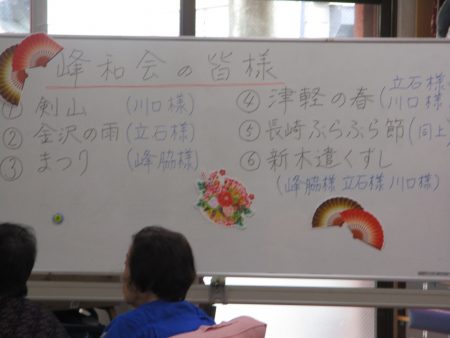 峰和会の皆様
① 剣山 (川口様)
② 金沢の雨 (立石様)
③ まつり (峰脇様)
④ 津軽の春 (立石様 川口様)
⑤ 長崎ぶらぶら節 (同上)
⑥ 新木遣くずし
(峰脇様 立石様 川口様)